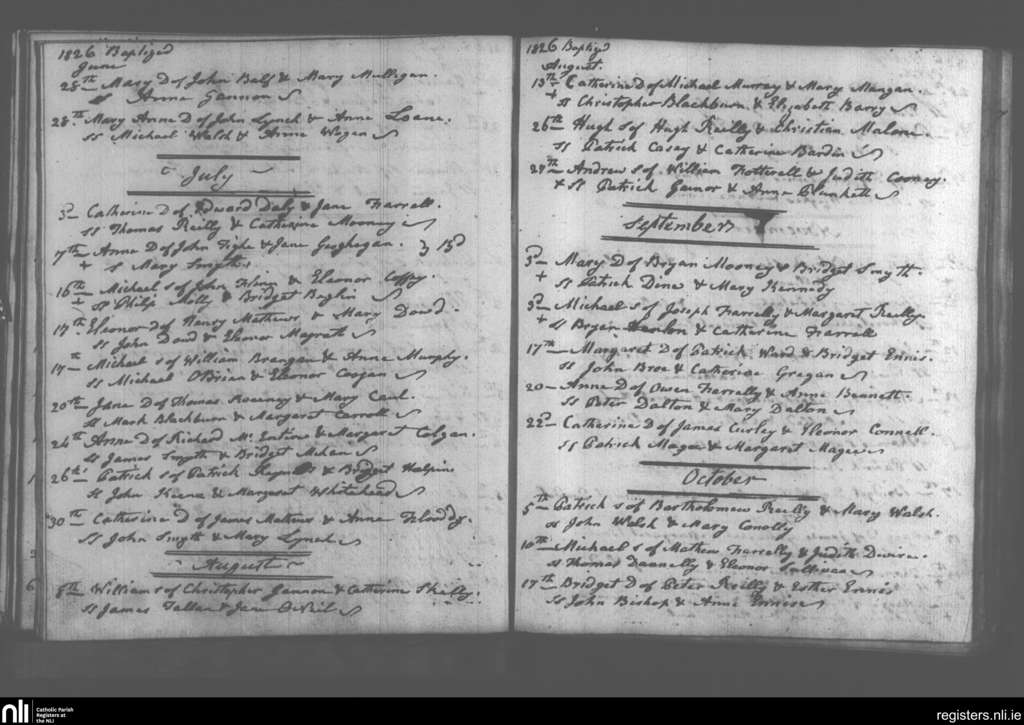 1826 Baptized
June
28th Mary D of John Balf & Mary Mulligan.
Ss Anne Gannon
28th Mary Anne D of John Lynch & Anne Loane.
Ss Michael Walsh & Anne Wogan
July
3d Catherine D of Edward Daly & Jane Farrell.
Ss Thomas Reilly & Catherine Mooney
7th Anne D of John Tighe & Jane Geoghegan.
+ S Mary Smyth
16th Michael S of John & Eleonor Coffy.
+ Ss Philip & Bridget
17th Eleonor D of Henry Mathews & Mary Dowd.
Ss John Dowd & Eleonor Magrath
17th Michael S of William Brangan & Anne Murphy.
Ss Michael OBrien & Eleonor Coogan
20th Jane D of Thomas Rooney & Mary Caul.
Ss Mark Blackburn & Margaret Carroll
24th Anne D of Richard Mc & Margaret Colgan.
Ss James Smyth & Bridget
26th Patrick S of Patrick Reynolds & Bridget Halpin
Ss John Keena & Margaret Whitehead
30th Catherine D of James Mathews & Anne Flooddy.
Ss John Smyth & Mary Lynch
August
8th William S of Christopher Gannon & Catherine Skelly.
Ss James & Jane
1826 Baptized
August.
13th Catherine D of Michael Murray & Mary Mangan.
+ Ss Christopher Blackburn & Elizabeth Barry
26th Hugh S of Hugh Reilly & Christian Malone.
Ss Patrick Casey & Catherine Bardin
27th Andrew S of William Fotterell & Judith Cooney.
+ Ss Patrick Gainor & Anne Plunkett
September
3d Mary D of Bryan Mooney & Bridget Smyth.
+ Ss Patrick Dine & Mary Kennedy
3d Michael S of Joseph Farrelly & Margaret Reilly
+ Ss Bryan Hanlon & Catherine Farrell
17th Margaret D of Patrick Ward & Bridget Ennis.
Ss John Broe & Catherine Gregan
20 Anne D of Owen Farrelly & Anne Bennett.
Ss Peter Dalton & Mary Dalton
22d Catherine D of James Curley & Eleonor Connell.
Ss Patrick Magee & Margaret Magee
October
5th Patrick S of Bartholomew Reilly & Mary Walsh.
Ss John Walsh & Mary Conolly
10th Michael S of Mathew Farrelly & Judith Divine.
Ss Thomas Dannelly & Eleonor Sullivan
17th Bridget D of Peter Reilly & Esther Ennis
Ss John Bishop & Anne Ennis
nli
Catholic Parish
Registers at
the NLI
registers.nli.ie